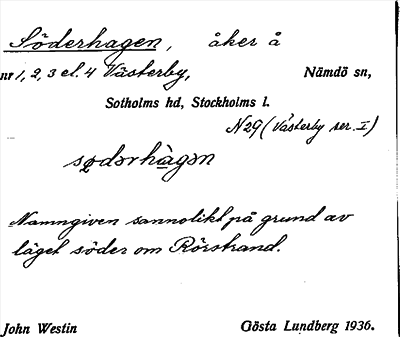 Söderhagen, åker å
nr 1, 2, 3 el. 4 Västerby, Nämdö sn,
Sotholms hd, Stockholms l.
N29 (Västerby ser. I)
Namngiven sannolikt på grund av
läget söder om Rörstrand.
John Westin Gösta Lundberg 1936.